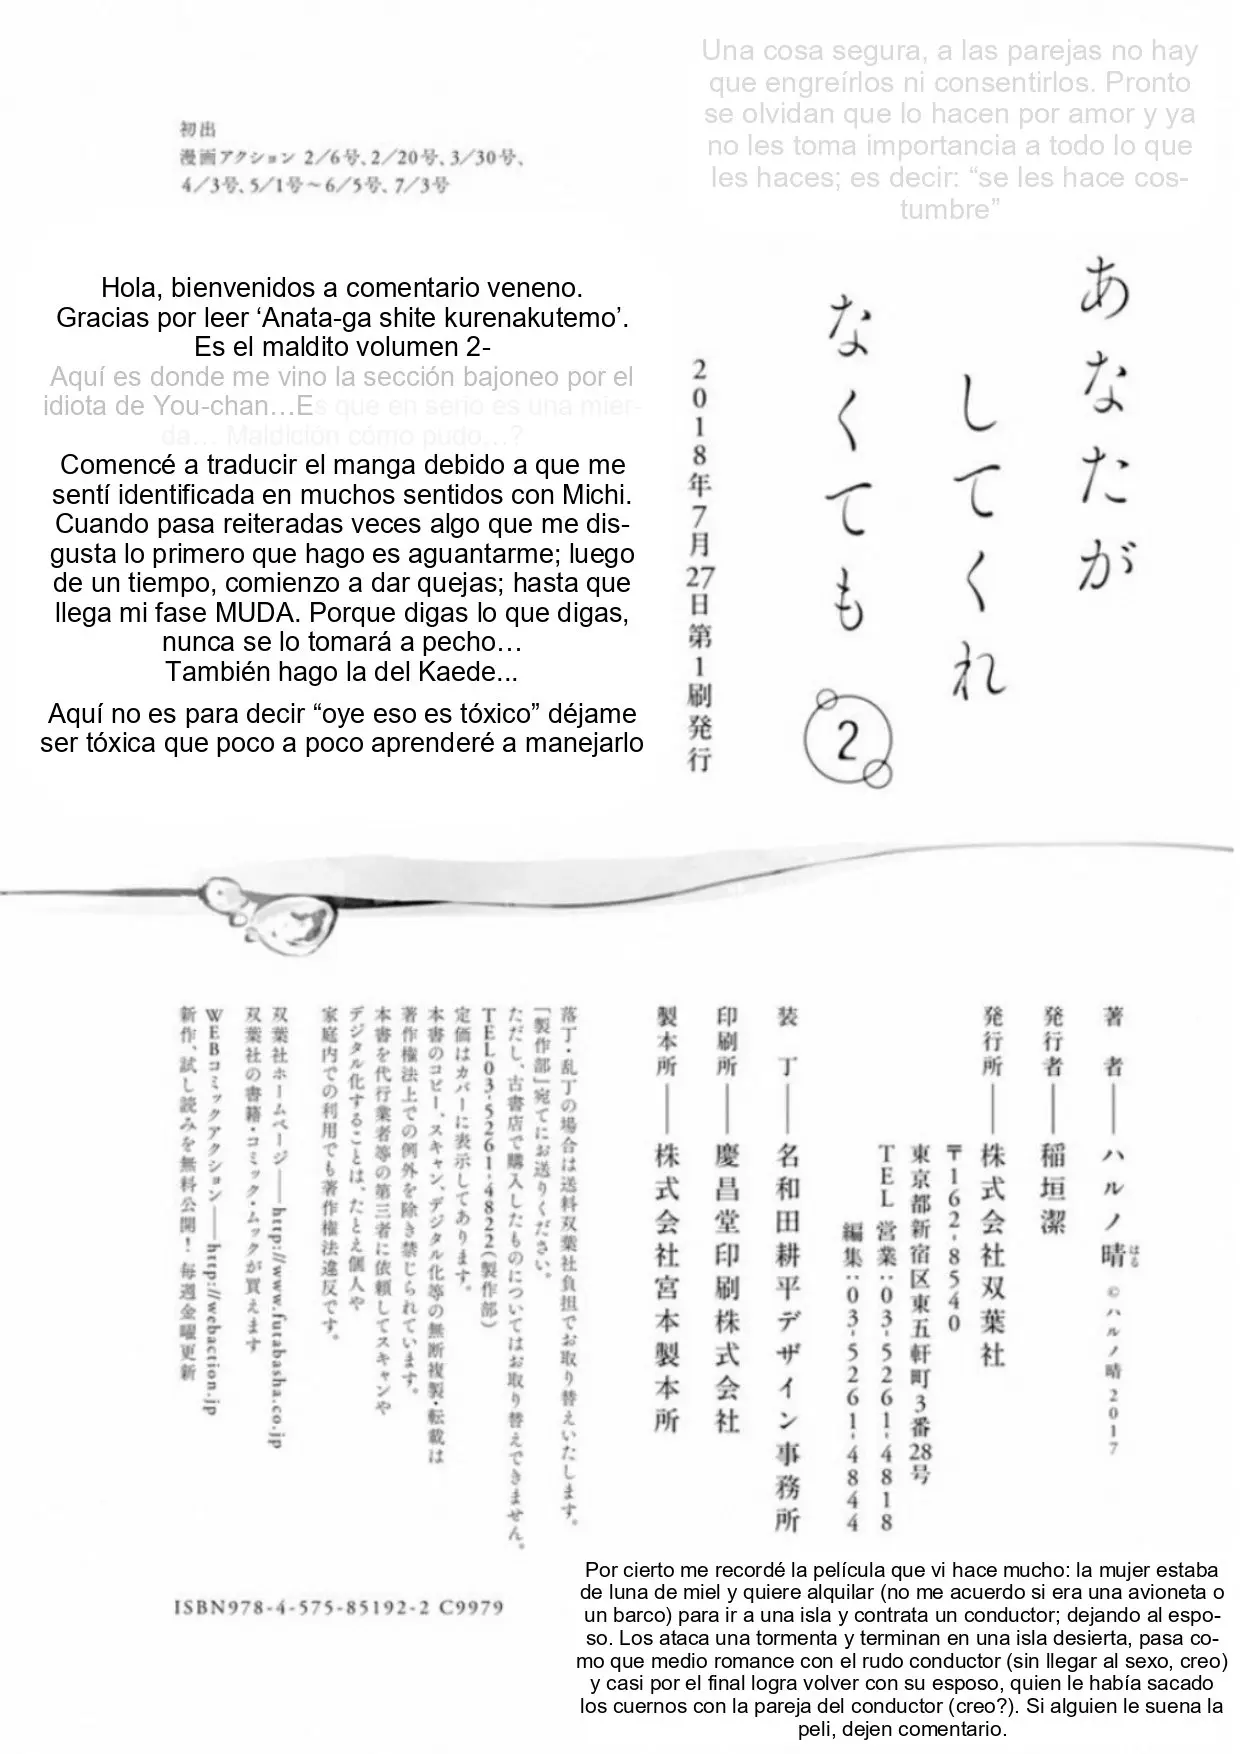 Una cosa segura, a las parejas no hay
que engreírlos ni consentirlos. Pronto
se olvidan que lo hacen por amor y ya
no les toma importancia a todo lo que
les haces; es decir: “se les hace cos-
tumbre”
初出
漫画アクション 2/6号、2/20号、3/30号、
4/3号、5/1号～6/5号、7/3号
Hola, bienvenidos a comentario veneno.
Gracias por leer ‘Anata-ga shite kurenakutemo’.
Es el maldito volumen 2-
Aquí es donde me vino la sección bajoneo por el
idiota de You-chan…Es que en serio es una mier-
da… Maldición cómo pudo…?
Comencé a traducir el manga debido a que me
sentí identificada en muchos sentidos con Michi.
Cuando pasa reiteradas veces algo que me dis-
gusta lo primero que hago es aguantarme; luego
de un tiempo, comienzo a dar quejas; hasta que
llega mi fase MUDA. Porque digas lo que digas,
nunca se lo tomará a pecho…
También hago la del Kaede...
Aquí no es para decir “oye eso es tóxico” déjame
ser tóxica que poco a poco aprenderé a manejarlo
あなたが
してくれ
なくても
2
2018年7月27日第1刷発行
著 者――ハルノ晴 ©ハルノ晴 2017
はる
発行者――稲垣潔
発行所――株式会社双葉社
〒162-8540
東京都新宿区東五軒町3番28号
TEL 営業:03-5261-4818
編集:03-5261-4844
装 丁――名和田耕平デザイン事務所
印刷所――慶昌堂印刷株式会社
製本所――株式会社宮本製本所
落丁・乱丁の場合は送料双葉社負担でお取り替えいたします。
「製作部」宛てにお送りください。
ただし、古書店で購入したものについてはお取り替えできません。
TEL03-5261-4822(製作部)
定価はカバーに表示してあります。
本書のコピー、スキャン、デジタル化等の無断複製・転載は
著作権法上での例外を除き禁じられています。
本書を代行業者等の第三者に依頼してスキャンや
デジタル化することは、たとえ個人や
家庭内での利用でも著作権法違反です。
双葉社ホームページ――http://www.futabasha.co.jp
双葉社の書籍・コミック・ムックが買えます
WEBコミックアクション――http://webaction.jp
新作、試し読みを無料公開! 毎週金曜更新
ISBN978-4-575-85192-2 C9979
Por cierto me recordé la película que vi hace mucho: la mujer estaba
de luna de miel y quiere alquilar (no me acuerdo si era una avioneta o
un barco) para ir a una isla y contrata un conductor; dejando al espo-
so. Los ataca una tormenta y terminan en una isla desierta, pasa co-
mo que medio romance con el rudo conductor (sin llegar al sexo, creo)
y casi por el final logra volver con su esposo, quien le había sacado
los cuernos con la pareja del conductor (creo?). Si alguien le suena la
peli, dejen comentario.